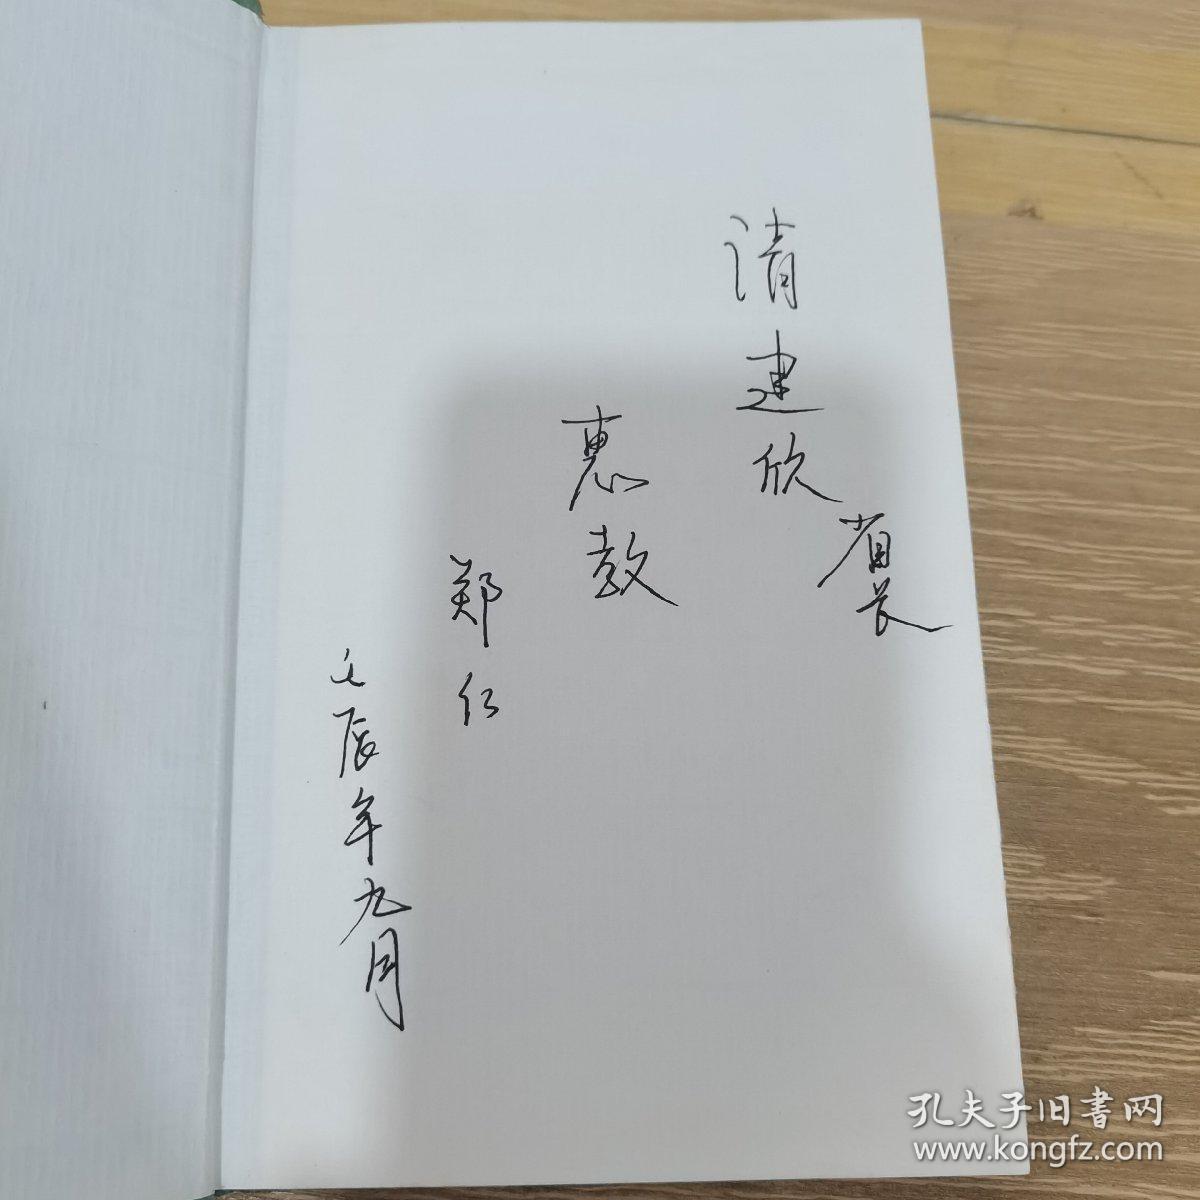 请建欣省长
惠教
郑仁
壬辰年九月
孔夫子旧书网
www.kongfz.com